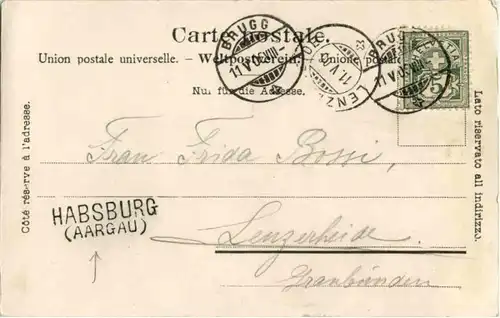 Carte postale.
Union postale universelle. – Weltpostverein. – Unione postale
Nur für die Adresse.
BRUGG
11.V.05.VIII–
11.V.
LENZ
BRUGG
11.V.05.VIII
HELVETIA
5
Côté réservé à l'adresse.
Lato riservato all indirizzo.
Frau Frida Bossi,
HABSBURG
(AARGAU)
Lenzerheide
Graubünden